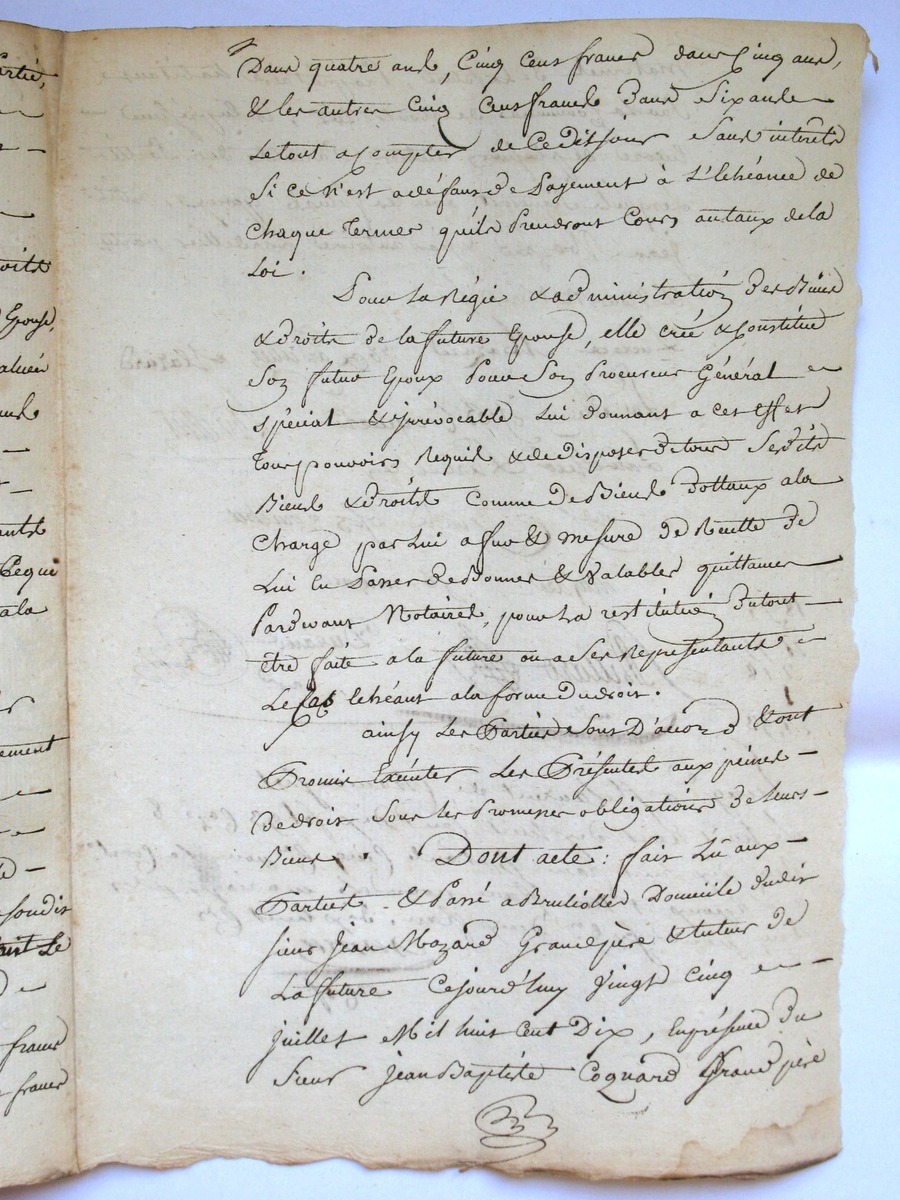 Dans quatre ans, Cinq cens francs dans Cinq ans,
& les autres Cinq Cens francs dans Six ans
Le tout a Compter de Ceditjour Sans interets
Si ce n'est a défaut de Payement à L'Echéance de
Chaque Termes qu'ils Prendront Cours au taux de la
Loi.
Pour La Régie & administration des Biens
& droits de la future Epouse, elle créé & Constitue
Son futur Epoux Pour Son Procureur Général
spécial & irrévocable Lui donnant a cet Effet
Tous pouvoirs Requis & de disposer de tous Sesdits
Biens & droits Comme de Biens Dottaux a la
Charge par Lui a fur & mesure de Recette de
Lui En Passer de Bonnes & Valables quittances
Pardevant Notaires, pour La restitution du tout
être faite a la future ou a Ses Représentants
Le Cas Echéant a la forme du droit.
ainsy Les Parties Sont D'accord & ont
Promis Exécuter Les Présentes aux peines
de droit Sous les Promesses obligations de leurs
Biens. Dont acte: fait Lû aux
Parties & Passé a Brulliolles Domicile dudit
sieur Jean Mazard Grand père & tuteur de
La future Cejourd'huy Vingt Cinq
juillet Mil huit Cent Dix, En présence du
Sieur Jean Baptiste Coquard Grand père
epouse,
francs
francs